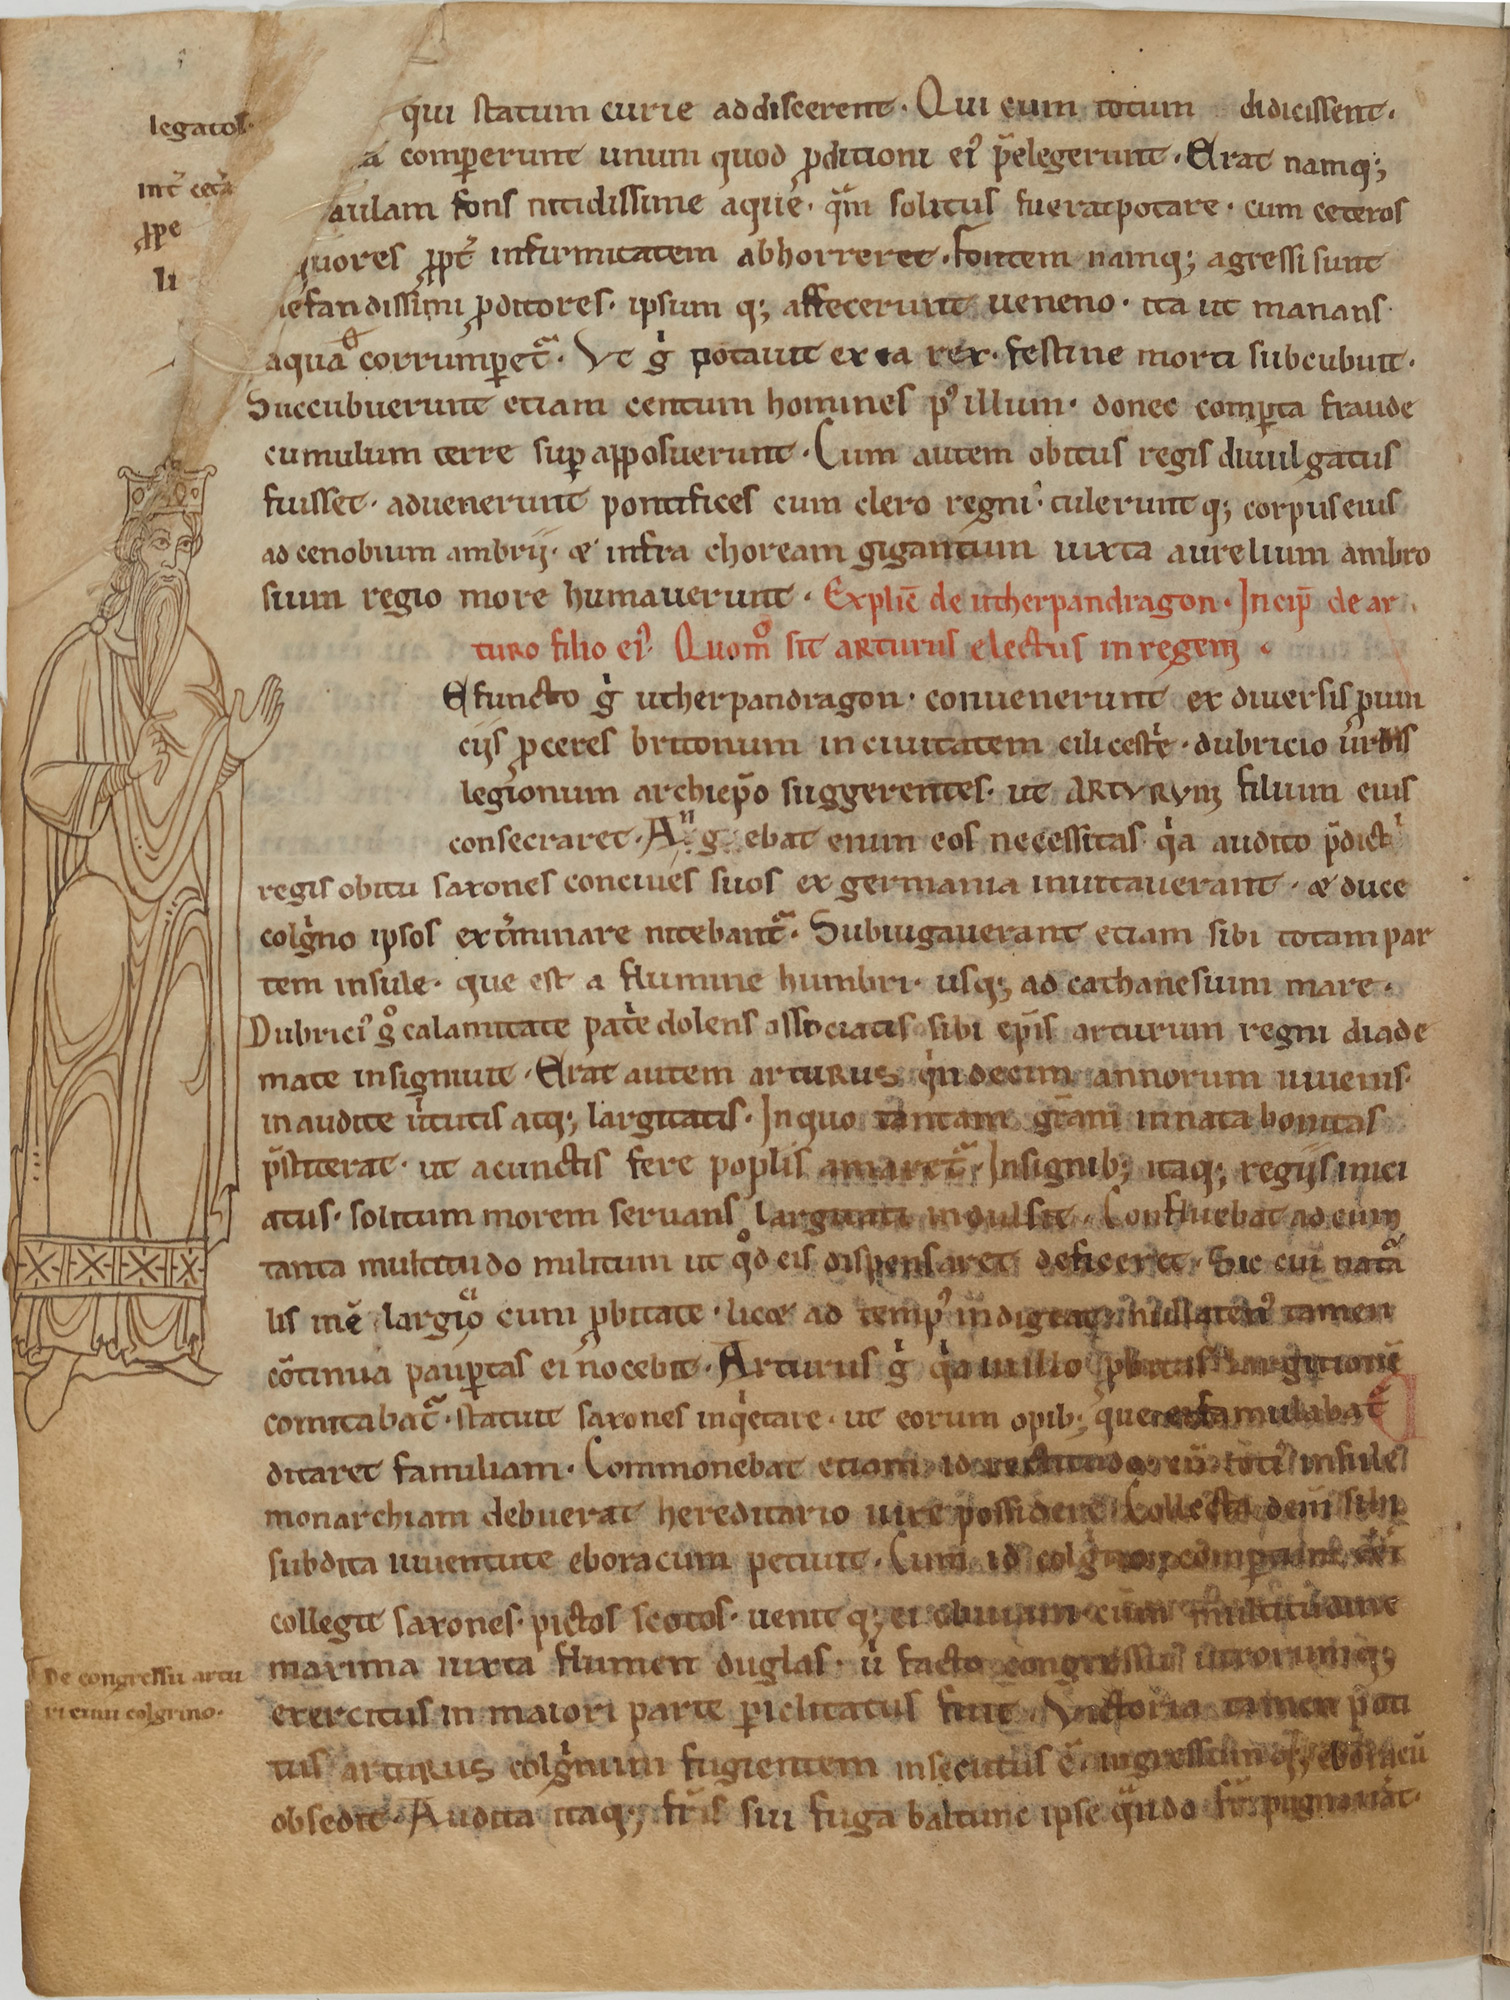 legatos·
int̄ cet̄a
ꝓpe
li
qui statum curie addiscerent. Qui cum totum didicissent.
a comꝑerunt unum quod ꝓditioni eiꝰ p̄elegerunt. Erat namq;
aulam fons nitidissime aque. quā solitus fuerat potare. cum ceteros
quores ꝓpt̄ infirmitatem abhorreret. fontem namq; agressi sunt
nefandissimi ꝓditores. ipsum q; affecerunt ueneno. ita ut manans
aqua corrumꝑet̄. Vt g̊ potauit ex ea rex. festine morti subcubuit.
Succubuerunt etiam centum homines pꝰ illum. donec comꝑta fraude
cumulum terre suꝑ apposuerunt. Cum autem obitus regis diuulgatus
fuisset. aduenerunt pontifices cum clero regni. tulerunt q; corpus eius
ad cenobium ambrij. & infra choream gigantium iuxta aurelium ambro
sium regio more humauerunt. Explic̄ de utherpandragon. Incip̄ de ar
turo filio eiꝰ. Quom̊ sit arturus electus in regem.
Efuncto g̊ utherpandragon. conuenerunt ex diuersis ꝓuin
ciis ꝓceres britonum in ciuitatem cilicestr̄e. dubricio urbis
legionum archiep̄o suggerentes. ut ARTVRVM filium eius
consecraret. Angebat enim eos necessitas qi̊a audito p̄dicti
regis obitu saxones conciues suos ex germania inuitauerant. & duce
colgi̊no ipsos ext̄minare nitebant̄. Subiugauerant etiam sibi totam par
tem insule. que est a flumine humbri. usq; ad cathanesium mare.
Dubriciꝰ g̊ calamitate pat̄e dolens associatis sibi ep̄is arturum regni diade
mate insigniuit. Erat autem arturus qi̊ndecim annorum iuuenis
inaudite ūtutis atq; largitatis. In quo tantam gr̄am innata bonitas
p̄stiterat. ut a cunctis fere poplis amaret̄. Insignib; itaq; regiis inici
atus. solitum morem seruans largitati indulsit. Confluebat ad eum
tanta multitudo militum ut qd̊ eis dispensaret deficeret. Sic cui natu̅ā
lis inē largiō cum ꝓbitate. lic& ad tempꝰ indigeat nullatenꝰ tamen
cōtinua pauꝑtas ei nocebit. Arturus g̊ qi̊a in illo ꝓbitas largitionē
comitabat̄. statuit saxones inqi̊etare. ut eorum opib; que ei famulabat̄
ditaret familiam. Commonebat etiam id rectitudo cū totiꝰ insule
monarchiam debuerat hereditario iure possidere. Collecta dein sibi
subdita iuuentute eboracum petiuit. Cum id colgi̊no comꝑtum ēet
collegit saxones. pictos scotos. uenit q; ei obuiam cum multitudine
maxima iuxta flumen duglas. u̇ facto congressu utrorumq;
De congressu artu
exercitus in maiori parte ꝑiclitatus fuit. Victoria tamen poti
ri cum colgrino.
tus arturus colgi̊num fugientem insecutus ē. ingressum q; eboracū
obsedit. Audita itaq; fr̄is sui fuga baltunc ipse qu̅ndo fr̄ pugnauāt.